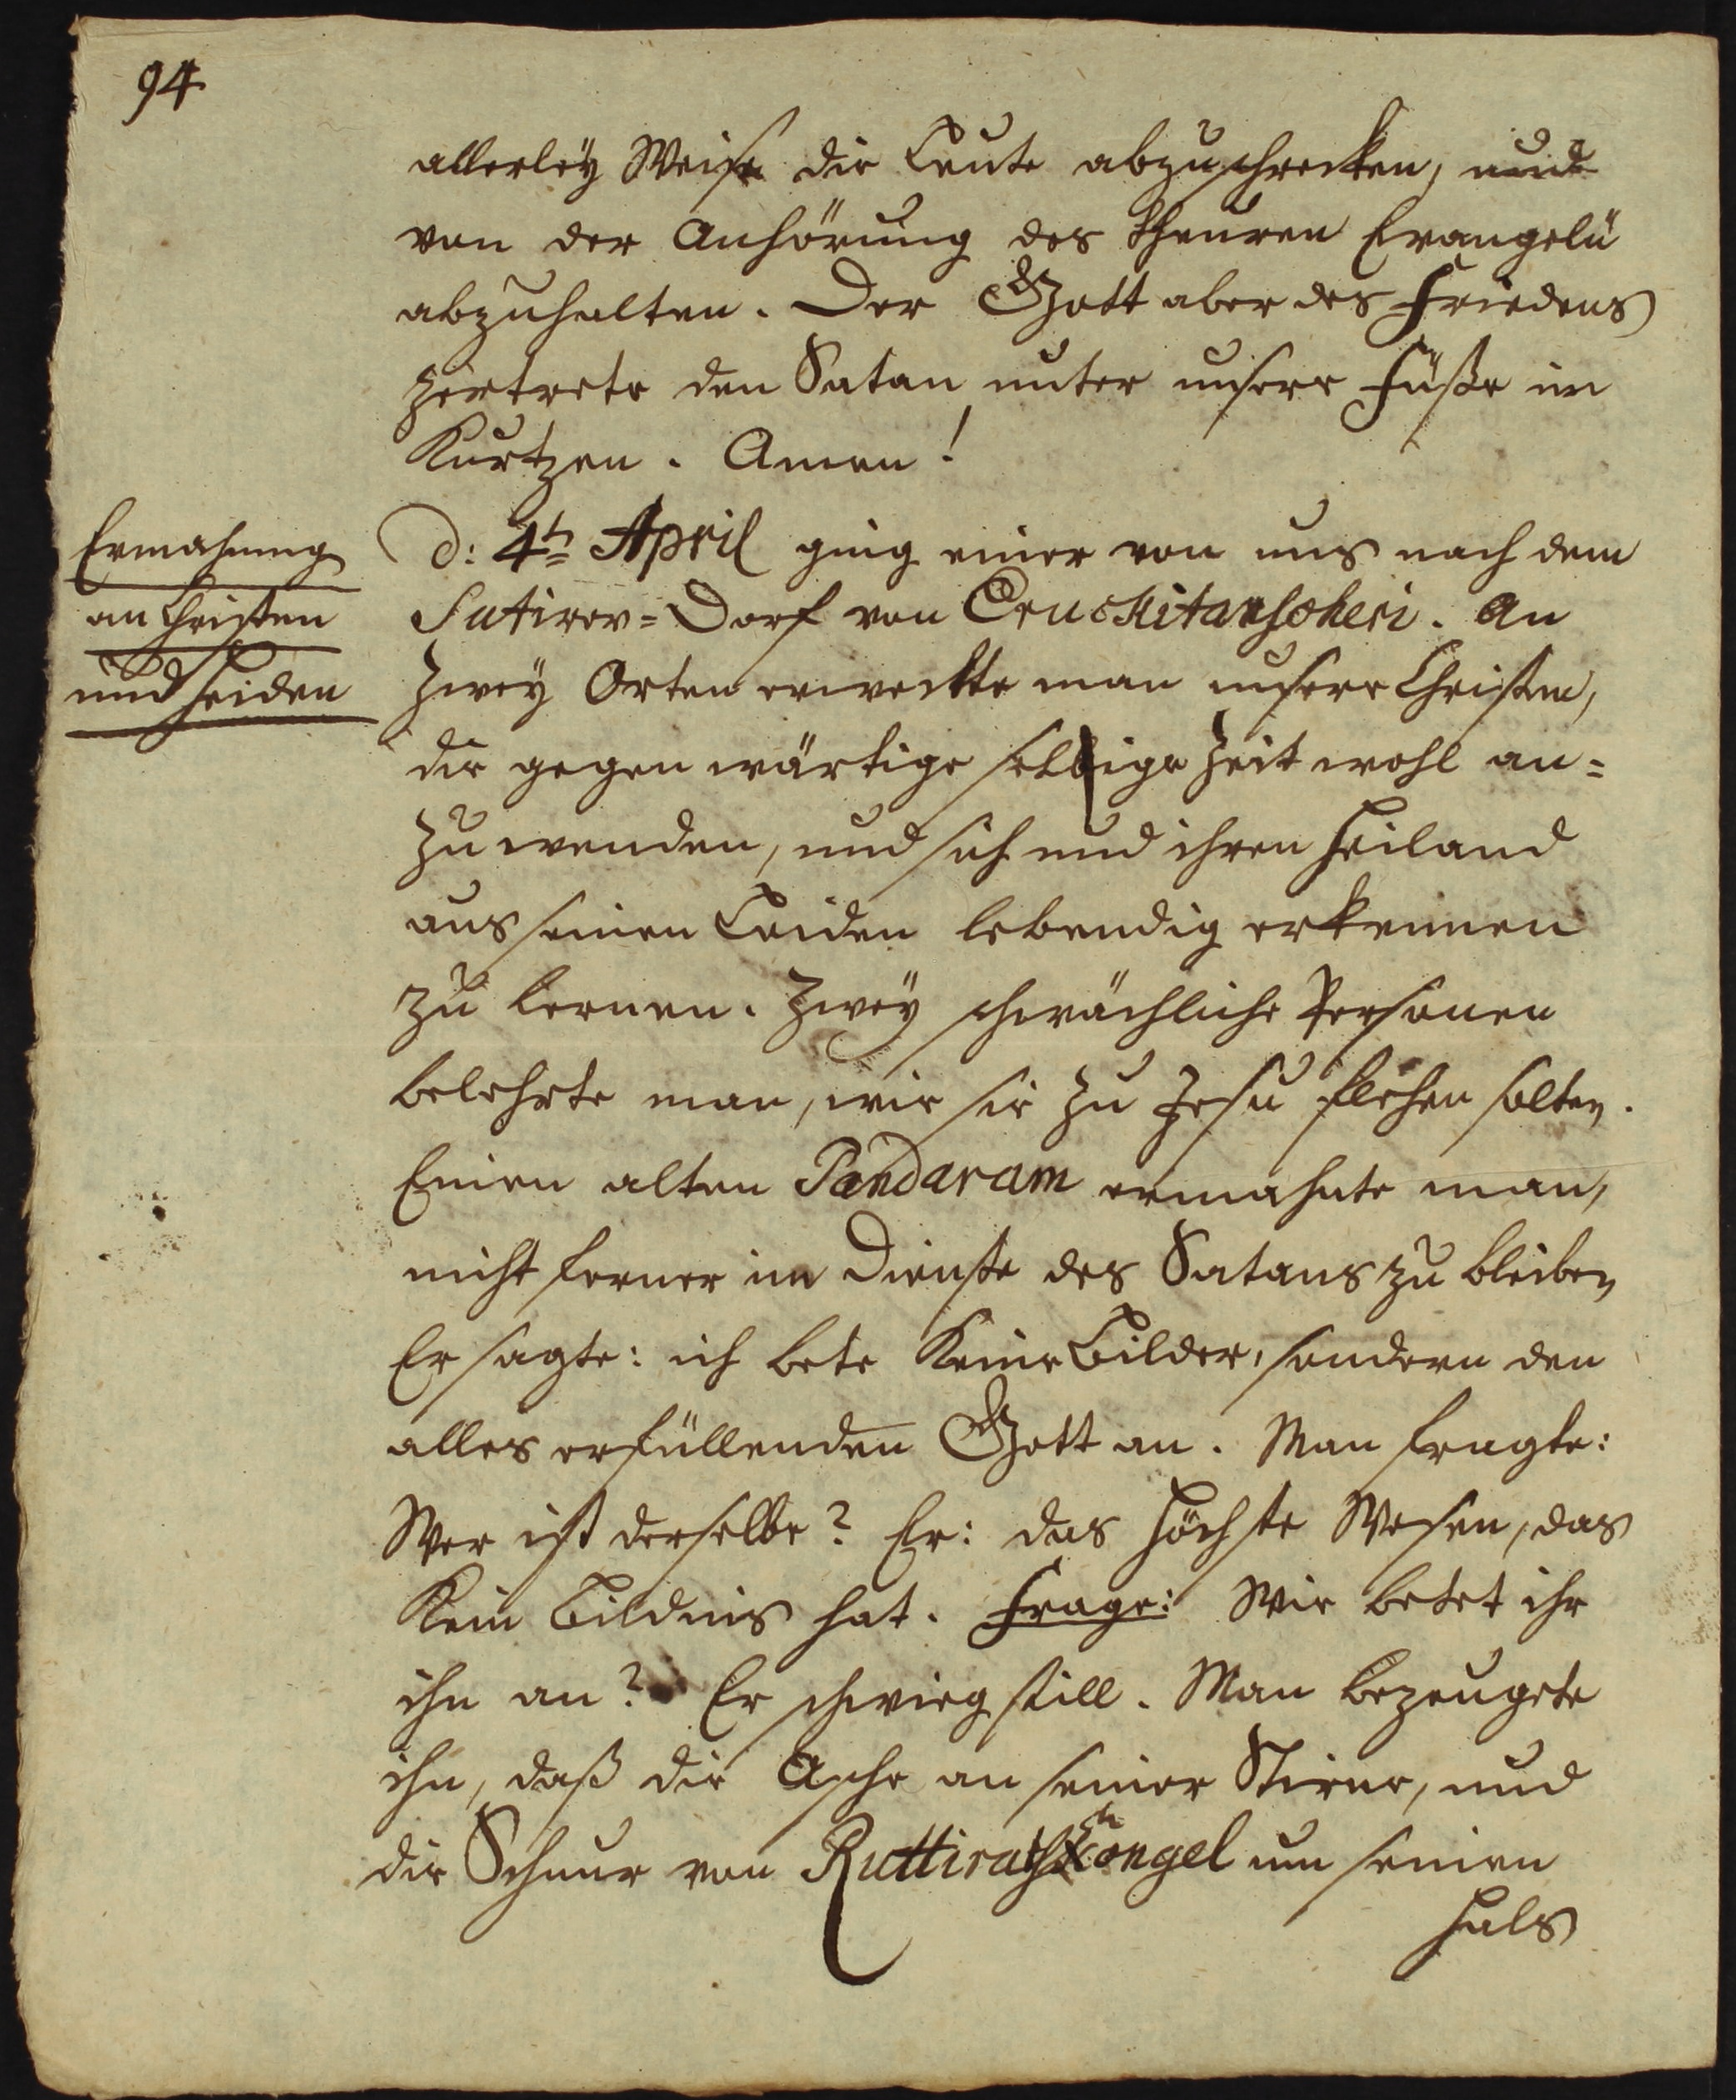 94
allerley Weise die Leute abzuschrecken, und
von der Anhörung des theuren Evangelii
abzuhalten. Der Gott aber des Friedens
zertrete den Satan unter unsere Füße in
Kurtzen. Amen!
Ermahnung
an Christen
und Heiden
d: 4t. April ging einer von uns nach dem
Sutirer=Dorf von Cruckitanscheri. An
zwey Orten erweckte man unsere Christen,
die gegen wärtige selige Zeit wohl an=
zu wenden, und sich und ihren Heiland
aus seinen Leiden lebendig erkennen
zu lernen. Zwey schwächliche Personen
belehrte man, wie sie zu Jesu flehen solten.
Einen alten Pandaram ermahnte man,
nicht ferner im Dienste des Satans zu bleiben
Er sagte: ich bete Keine Bilder, sondern den
alles erfüllenden Gott an. Man fragte:
Wer ist derselbe? Er: das höchste Wesen, das
Kein Bildnis hat. Frage: Wie betet ihr
ihn an? Er schwieg still. Man bezeugete
ihn, daß die Asche an seiner Stirne, und
die Schnur von um seinen
Hals